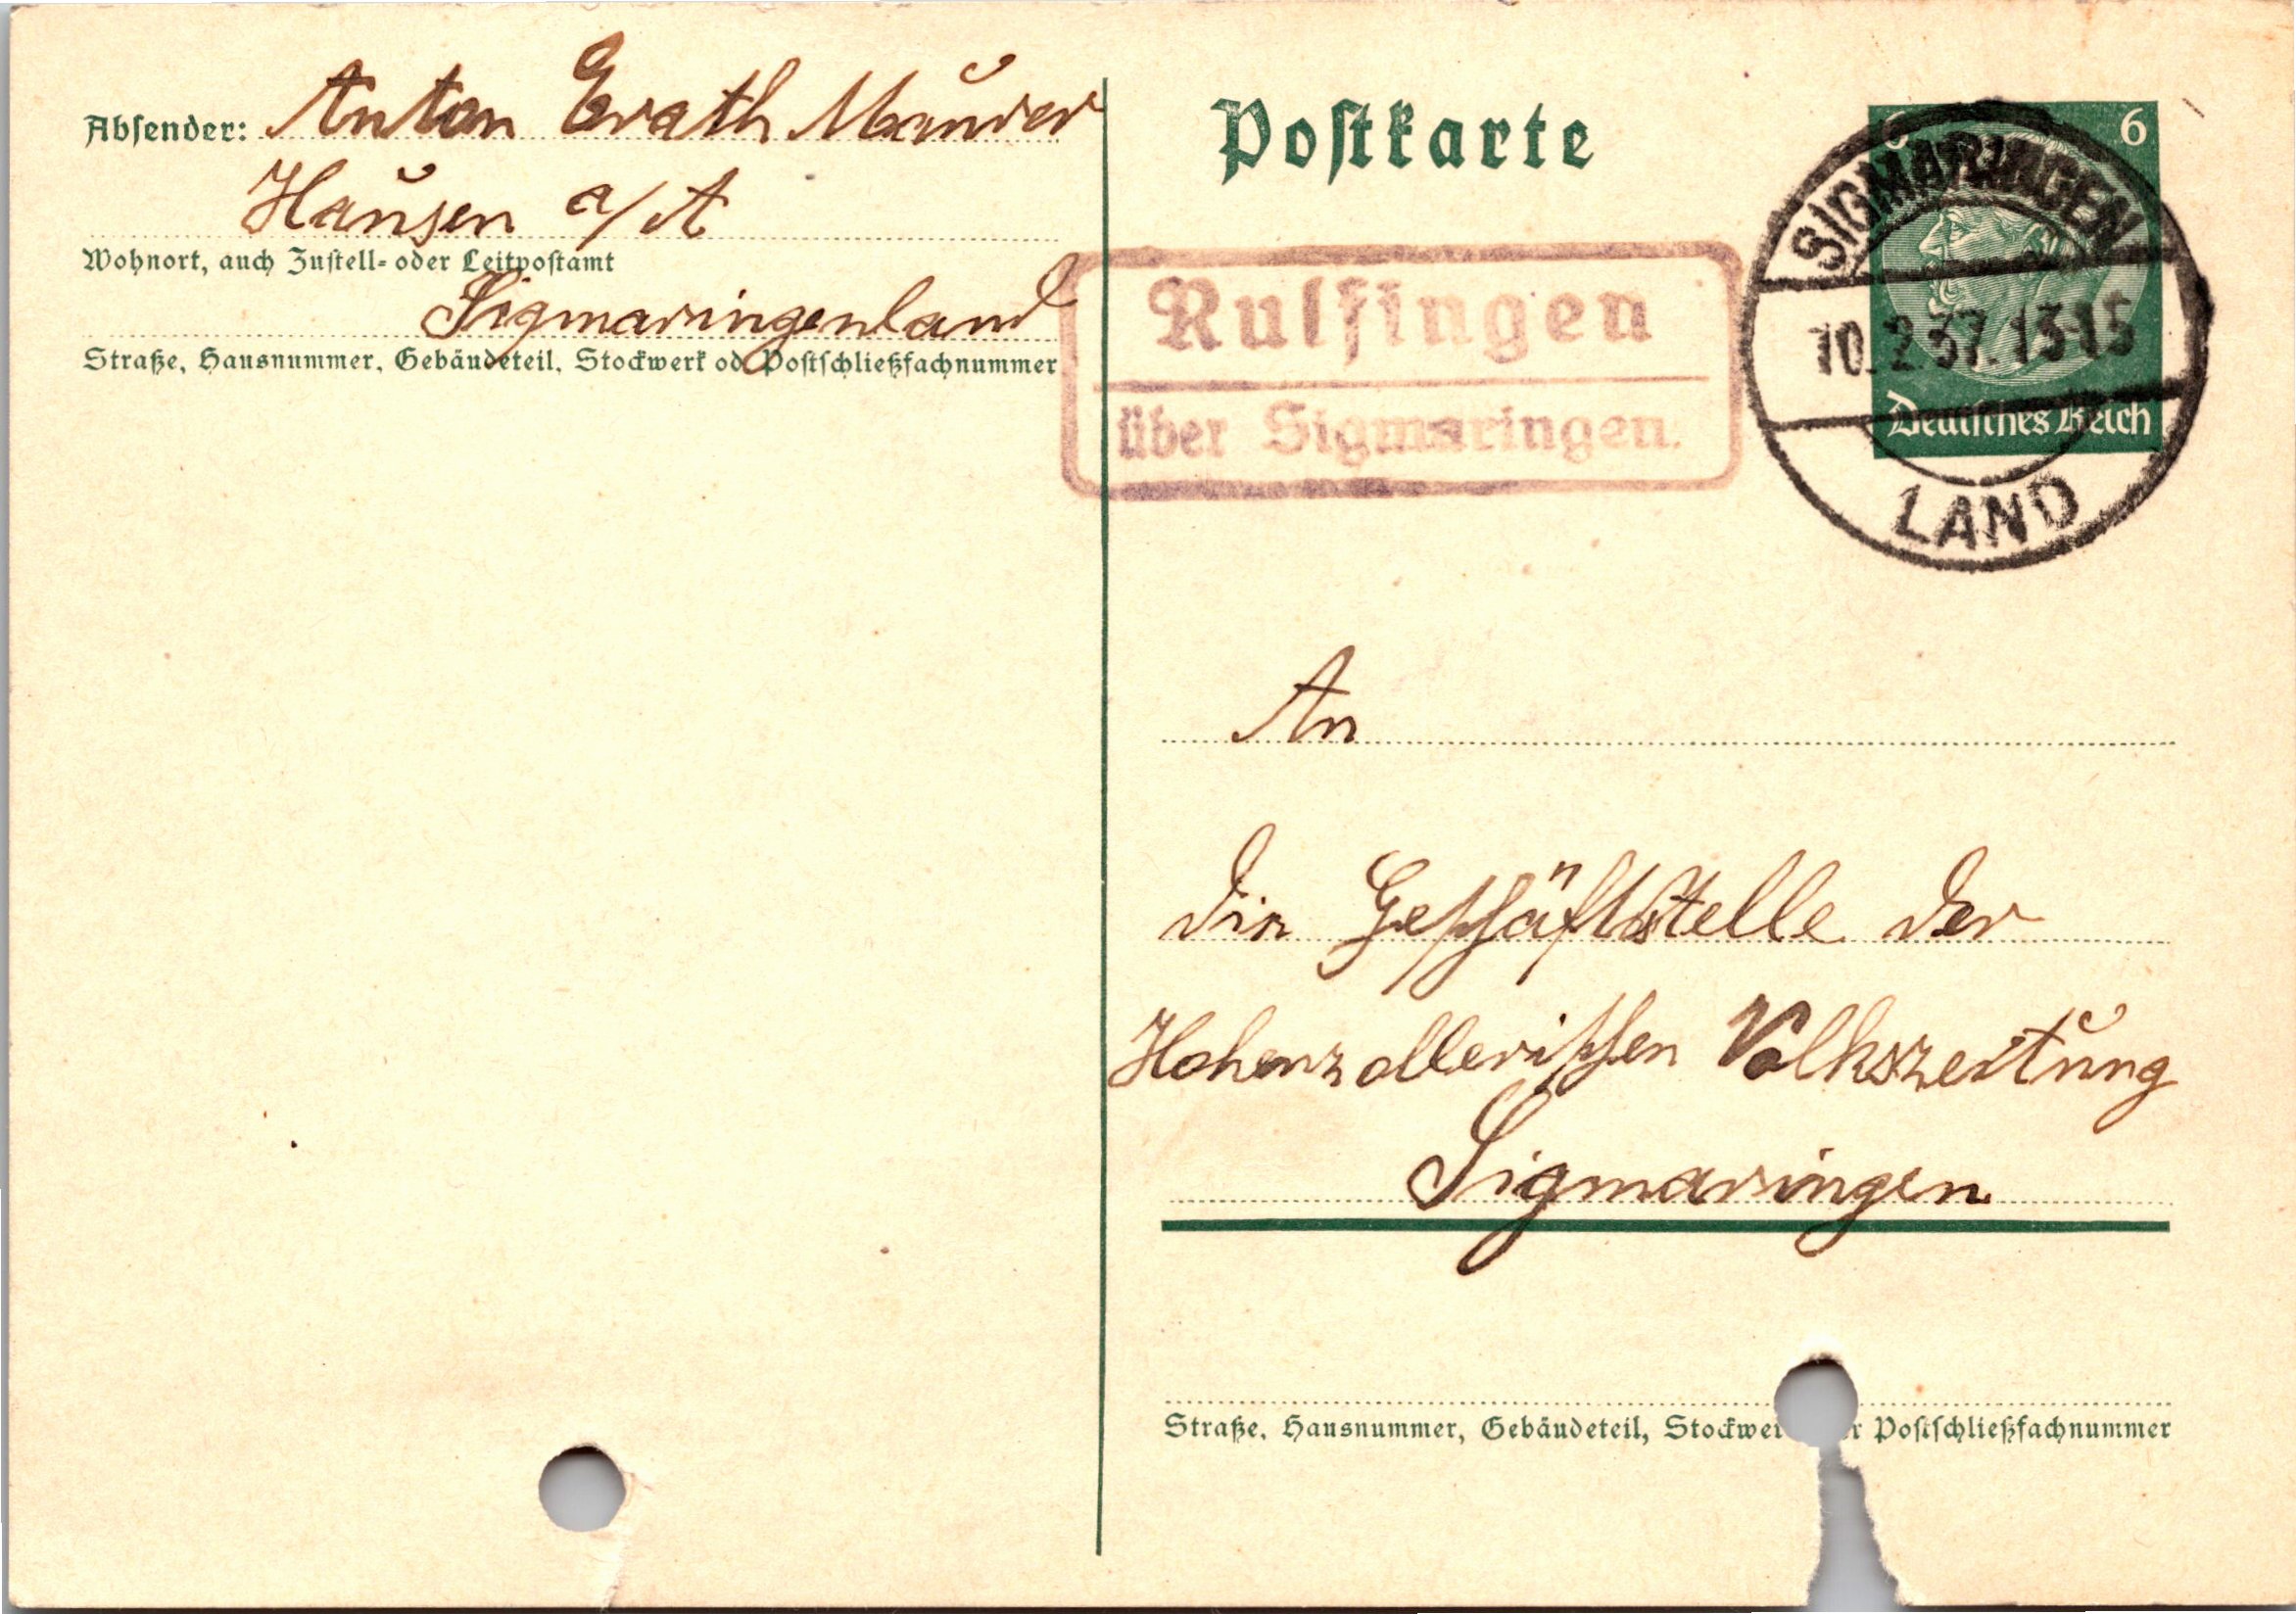 Absender: Anton Erath Maurer
Hausen a/A
Wohnort, auch Zustell- oder Leitpostamt
Sigmaringenland
Straße, Hausnummer, Gebäudeteil, Stockwerk od Postschließfachnummer
Postkarte
Rulfingen
über Sigmaringen.
6 6
Deutsches Reich
SIGMARINGEN
10.2.37.13-15
LAND
An
die Geschäftsstelle der
Hohenzollerischen Volkszeitung
Sigmaringen
Straße, Hausnummer, Gebäudeteil, Stockwer r Postschließfachnummer